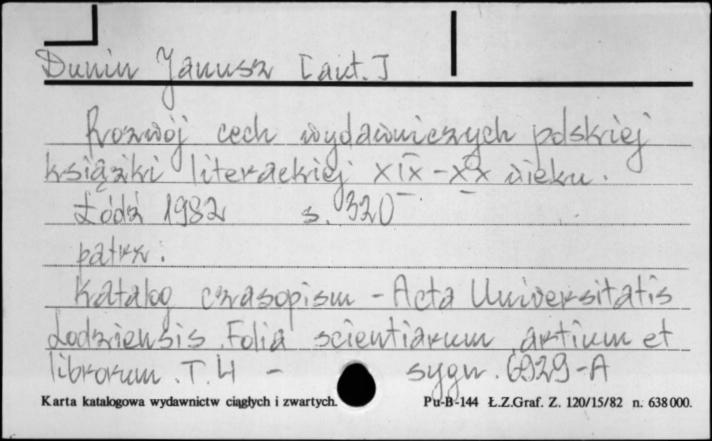 Dunin Janusz [aut.]
Rozwój cech wydawniczych polskiej
książki literackiej XIX-XX wieku.
Łódź 1982 s. 320
patrz:
Katalog czasopism - Acta Universitatis
Lodziensis. Folia scientiarum artium et
librorum. T. 4 - sygn. 6929-A
Karta katalogowa wydawnictw ciągłych i zwartych. Pu-B-144 Ł.Z.Graf. Z. 120/15/82 n. 638000.